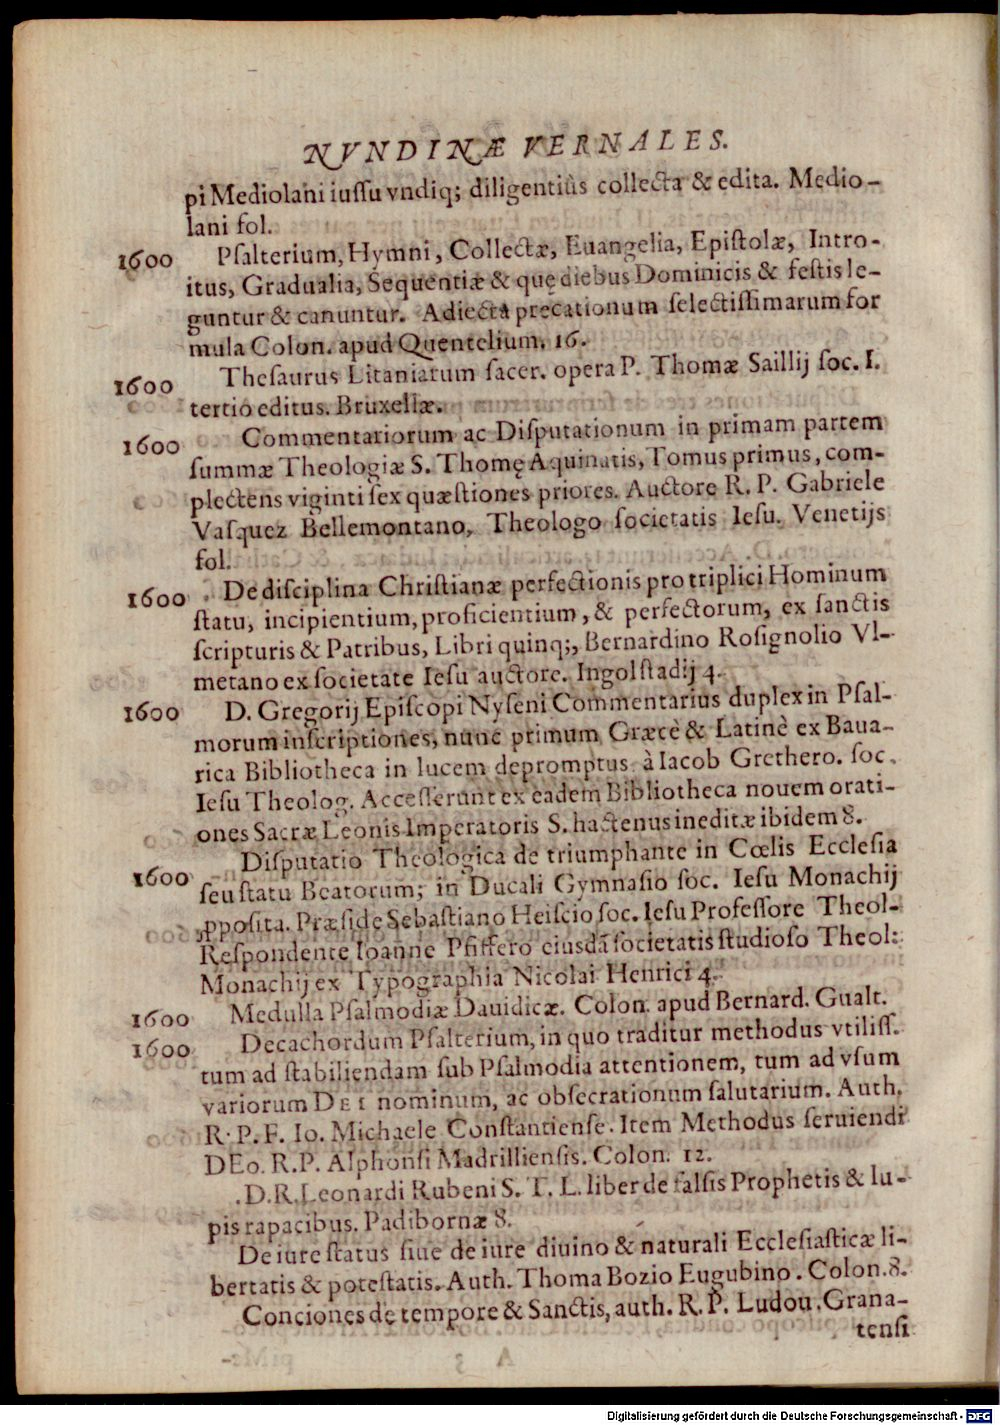 NVNDINÆ VERNALES.
pi Mediolani iuſſu vndiq; diligentiùs collecta & edita. Medio-
lani fol.
1600 Pſalterium, Hymni, Collectæ, Euangelia, Epiſtolæ, Intro-
itus, Gradualia, Sequentiæ & quę diebus Dominicis & feſtis le-
guntur & canuntur. Adiecta precationum ſelectiſſimarum for
mula Colon. apud Quentelium. 16.
1600 Theſaurus Litaniarum ſacer. opera P. Thomæ Saillij ſoc. I.
tertio editus. Bruxellæ.
1600 Commentariorum ac Diſputationum in primam partem
ſummæ Theologiæ S. Thomę Aquinatis, Tomus primus, com-
plectens viginti ſex quæſtiones priores. Auctore R. P. Gabriele
Vaſquez Bellemontano, Theologo ſocietatis Ieſu. Venetijs
fol.
1600 De diſciplina Chriſtianæ perfectionis pro triplici Hominum
ſtatu, incipientium, proficientium, & perfectorum, ex ſanctis
ſcripturis & Patribus, Libri quinq;, Bernardino Roſignolio Vl-
metano ex ſocietate Ieſu auctore. Ingolſtadij 4.
1600 D. Gregorij Epiſcopi Nyſeni Commentarius duplex in Pſal-
morum inſcriptiones, nunc primum Græcè & Latinè ex Baua-
rica Bibliotheca in lucem depromptus à Iacob Grethero. ſoc.
Ieſu Theolog. Acceſſerunt ex eadem Bibliotheca nouem orati-
ones Sacræ Leonis Imperatoris S. hactenus ineditæ ibidem 8.
1600 Diſputatio Theologica de triumphante in Cœlis Eccleſia
ſeu ſtatu Beatorum; in Ducali Gymnaſio ſoc. Ieſu Monachij
ꝓpoſita. Præſide Sebaſtiano Heiſcio ſoc. Ieſu Profeſſore Theol-
Reſpondente Ioanne Pfiffero eiusdā ſocietatis ſtudioſo Theol:
Monachij ex Typographia Nicolai Henrici 4.
1600 Medulla Pſalmodiæ Dauidicæ. Colon. apud Bernard. Gualt.
1600 Decachordum Pſalterium, in quo traditur methodus vtiliſſ.
tum ad ſtabiliendam ſub Pſalmodia attentionem, tum ad vſum
variorum DEI nominum, ac obſecrationum ſalutarium. Auth.
R. P. F. Io. Michaele Conſtantienſe. Item Methodus ſeruiendi
DEo. R. P. Alphonſi Madrillienſis. Colon. 12.
D. R. Leonardi Rubeni S. T. L. liber de falſis Prophetis & lu-
pis rapacibus. Padibornæ 8.
De iure ſtatus ſiue de iure diuino & naturali Eccleſiaſticæ li-
bertatis & poteſtatis. Auth. Thoma Bozio Eugubino. Colon. 8.
Conciones de tempore & Sanctis, auth. R. P. Ludou. Grana-
tenſi
Digitalisierung gefördert durch die Deutsche Forschungsgemeinschaft - DFG